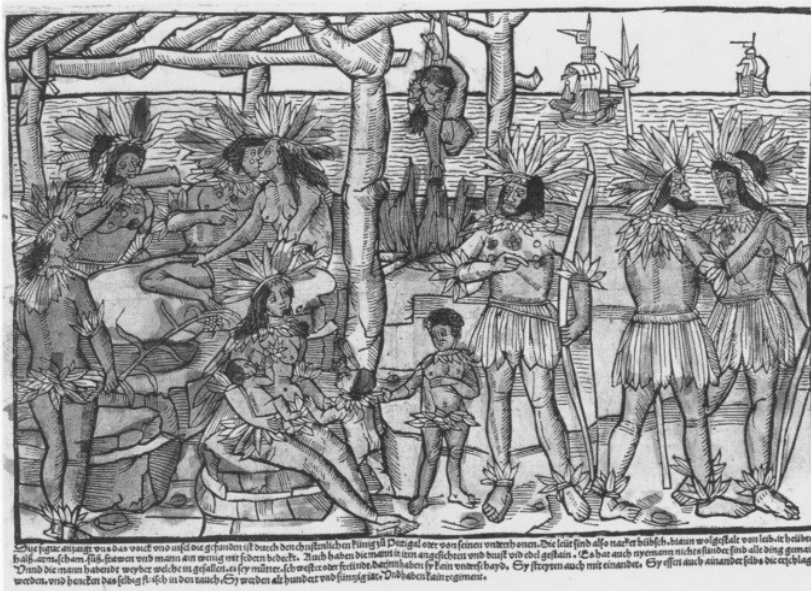 Dise figur anzaigt vns das volck vnd insel die gefunden ist durch den christenlichen künig zů Portigal oder von seinen vnderthonen. Die leüt sind also nacket hübsch. braun wolgestalt von leib. ir heübter
halß. arm. scham. füß. frawen vnd mann ain wenig mit federn bedeckt. Auch haben die mann in iren angesichten vnd brust vil edel gestain. Es hat auch nyemann nichts sunder sind alle ding gemain
Vnnd die mann habendt weyber welche in gefallen. es sey můtter. schwester oder freündt. darjnn haben sy kain vnderschayd. Sy streyten auch mit einander. Sy essen auch ainander selbs die erschlagen
werden. vnd hencken das selbig flaisch in den rauch. Sy werden alt hundert vnd fünftzig iar. Vnd haben kain regiment.